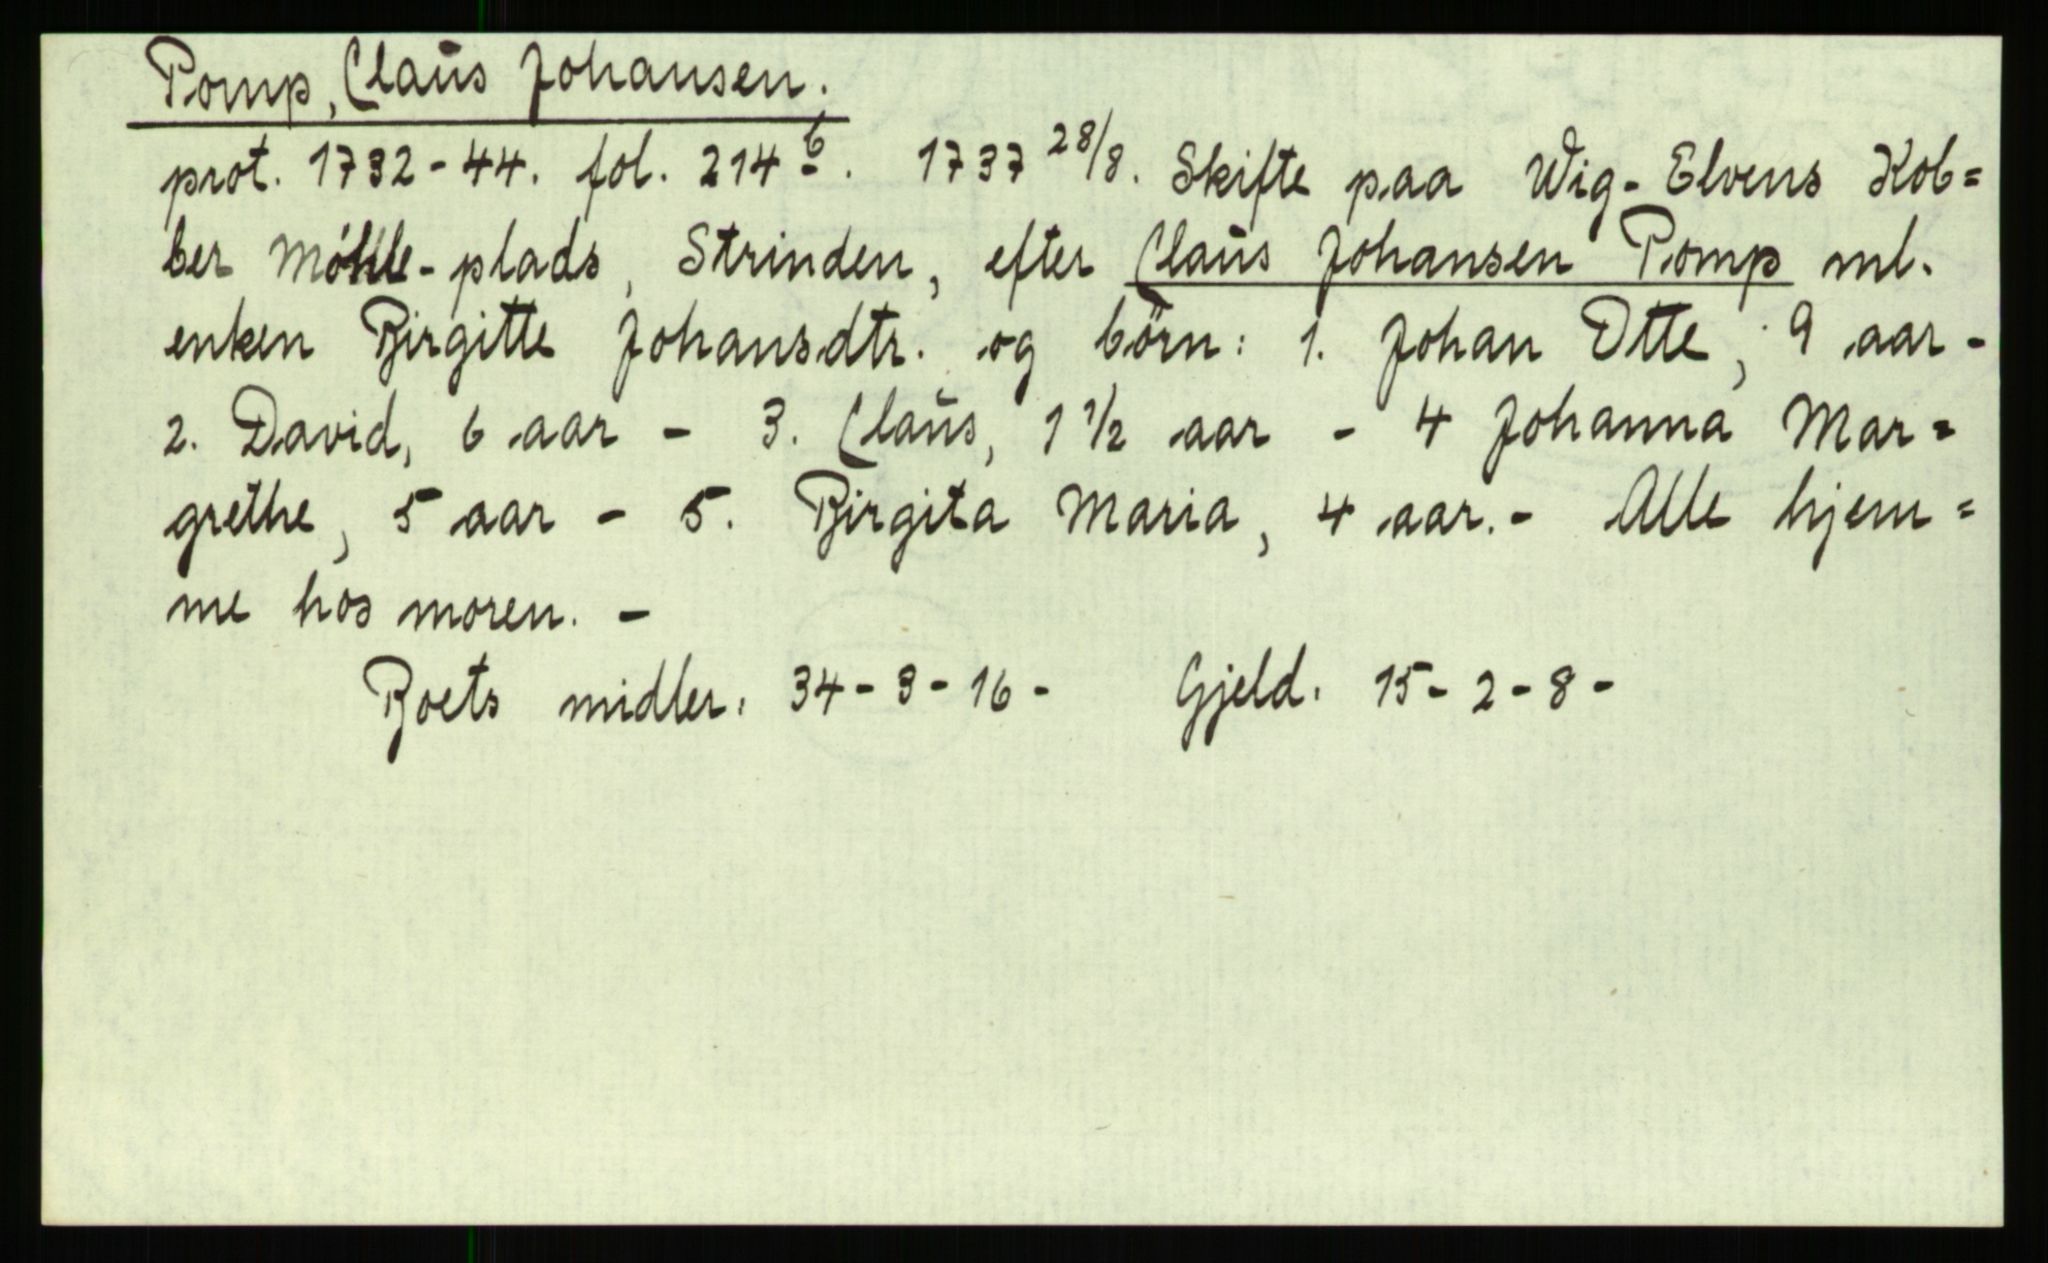 Pomp, Claus Johansen.
prot. 1732-44. fol. 214 b. 1737 28/8. Skifte paa Wig-Elvens Kob=
ber Möhle-plads, Strinden, efter Claus Johansen Pomp ml.
enken Birgitte Johansdtr. og börn: 1. Johan Otte, 9 aar -
2. David, 6 aar - 3. Claus, 1 1/2 aar - 4 Johanna Mar=
grethe, 5 aar - 5. Birgita Maria, 4 aar. - Alle hjem=
me hos moren. -
Boets midler. 34-3-16- Gjeld. 15-2-8-